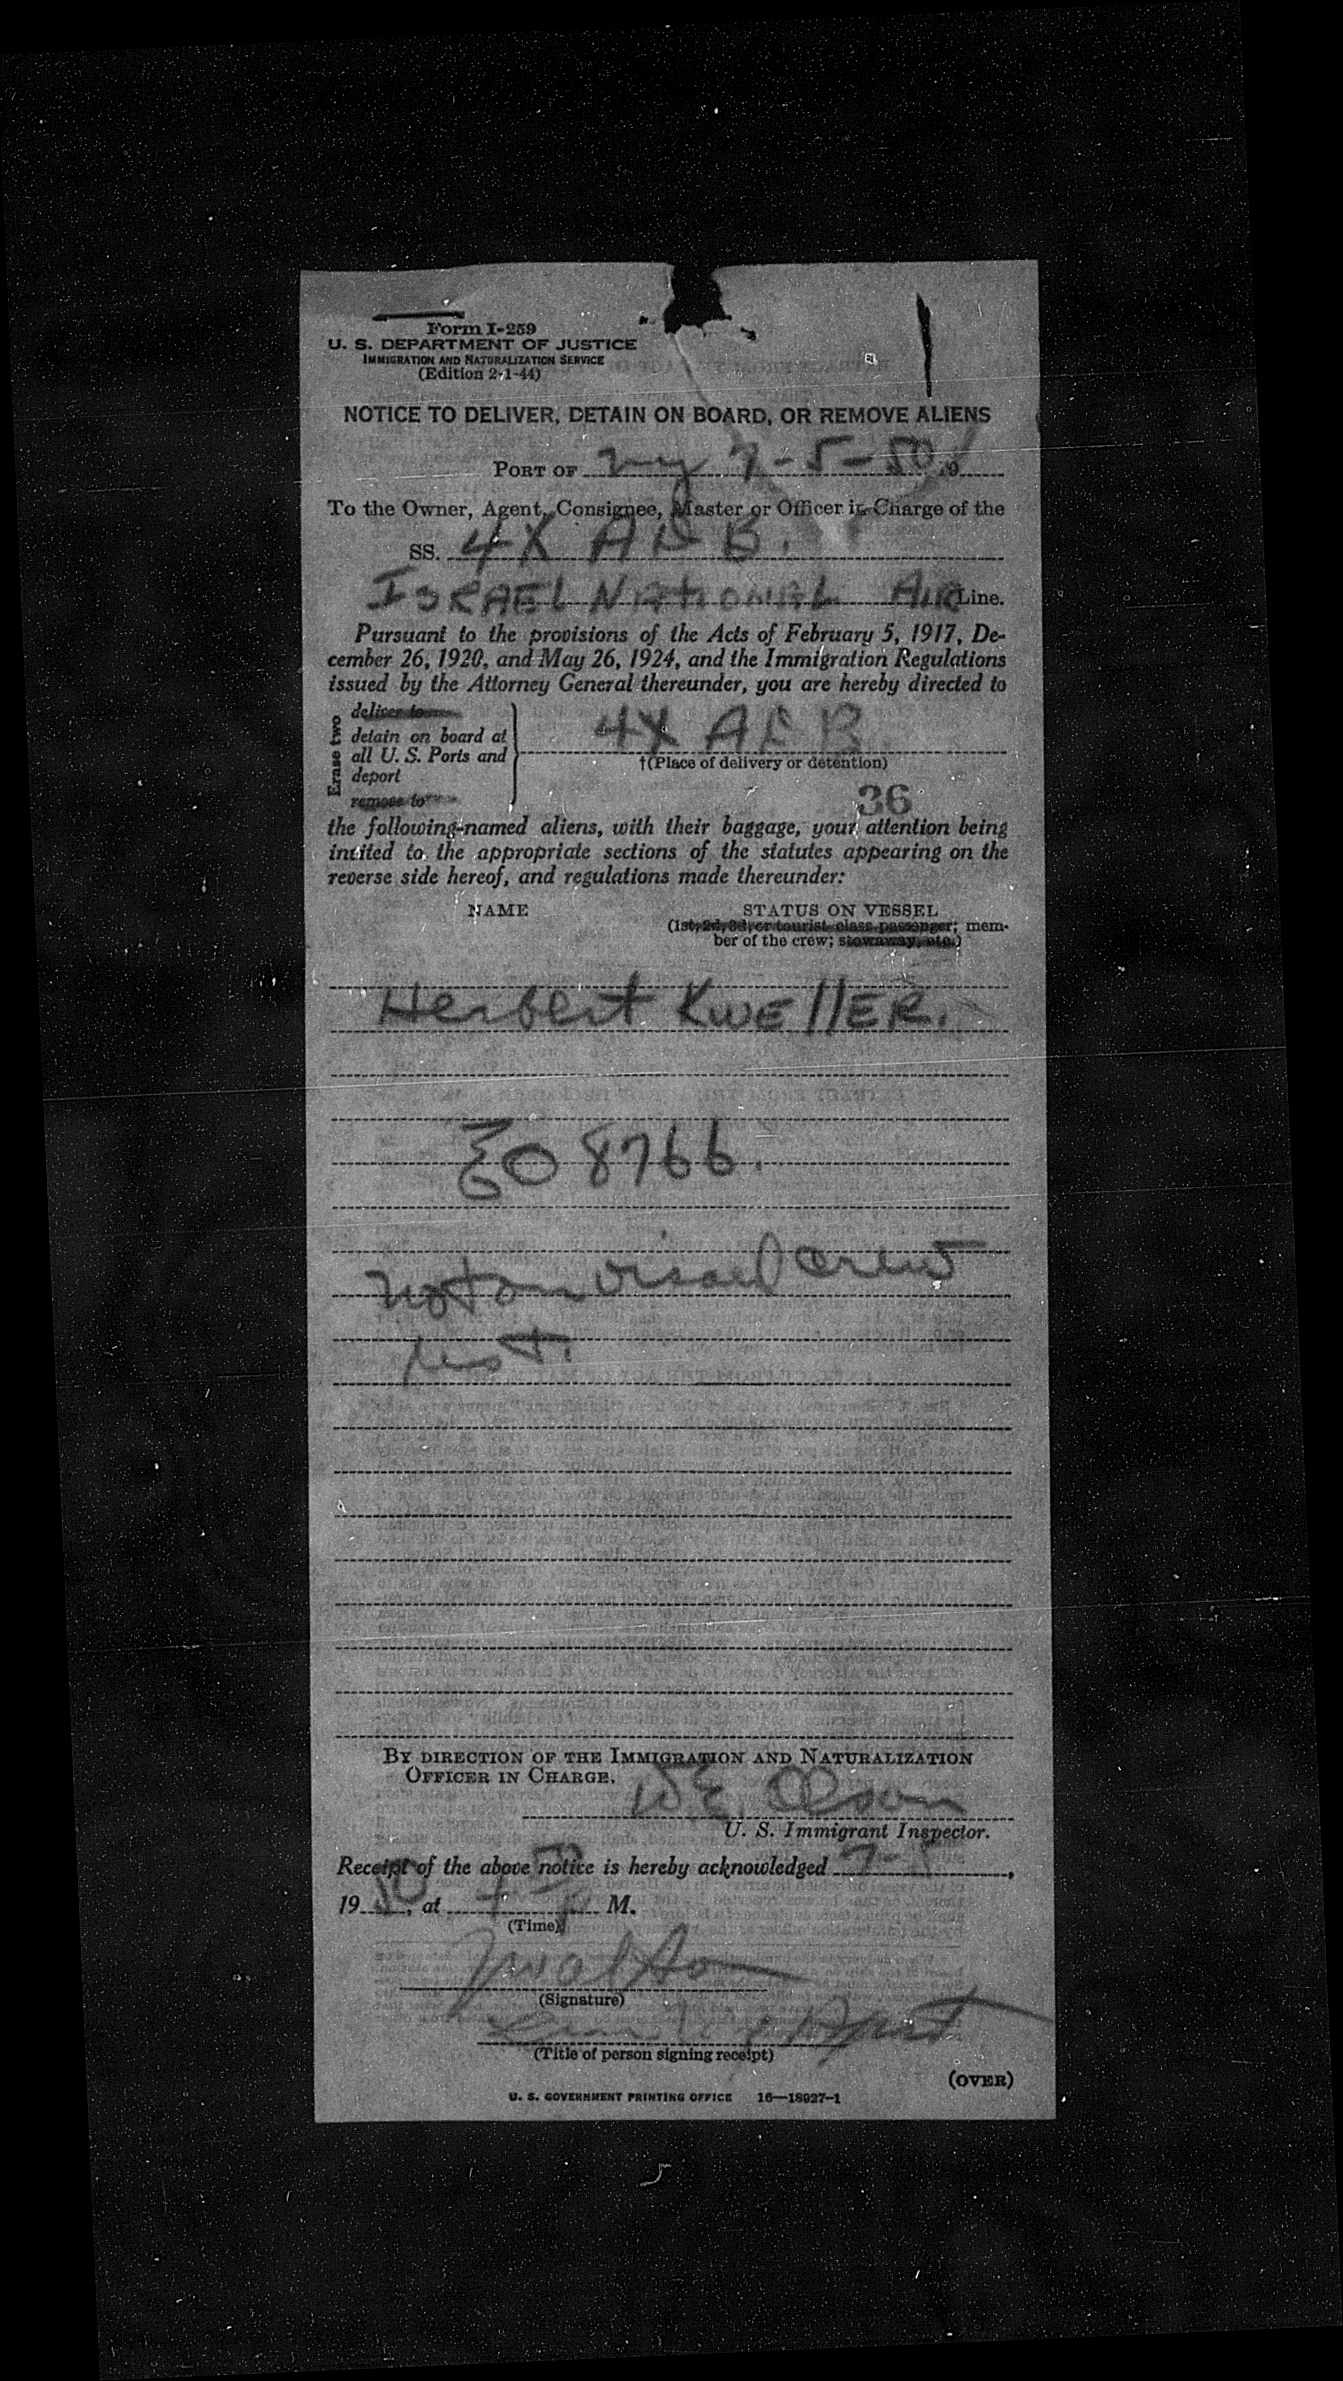 Form I-259
U. S. DEPARTMENT OF JUSTICE
IMMIGRATION AND NATURALIZATION SERVICE
(Edition 2-1-44)
NOTICE TO DELIVER, DETAIN ON BOARD, OR REMOVE ALIENS
PORT OF ny 7-5-50, 19
To the Owner, Agent, Consignee, Master or Officer in Charge of the
SS. 4X AEB.
ISRAEL NATIONAL AIR Line.
Pursuant to the provisions of the Acts of February 5, 1917, De-
cember 26, 1920, and May 26, 1924, and the Immigration Regulations
issued by the Attorney General thereunder, you are hereby directed to
Erase two
deliver to
detain on board at
all U. S. Ports and
deport
remove to
4X AEB
†(Place of delivery or detention)
36
the following-named aliens, with their baggage, your attention being
invited to the appropriate sections of the statutes appearing on the
reverse side hereof, and regulations made thereunder:
NAME STATUS ON VESSEL
(1st, 2d, 3d, or tourist class passenger; mem-
ber of the crew; stowaway, etc.)
Herbert KwEllER.
308766.
not on visaed crew
list.
BY DIRECTION OF THE IMMIGRATION AND NATURALIZATION
OFFICER IN CHARGE.
WE. Olson
U. S. Immigrant Inspector.
Receipt of the above notice is hereby acknowledged 7-5,
1950, at M.
(Time)
(Signature)
(Title of person signing receipt)
(OVER)
U. S. GOVERNMENT PRINTING OFFICE 16—18927-1